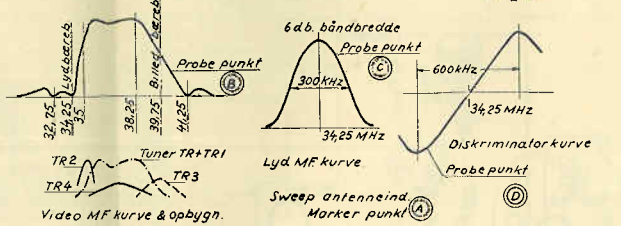 Lydbæreb.
Billed bæreb.
Probe punkt
B
32,75
34,25
35
38,25
39,75
41,25
TR2
Tuner TR+TR1
TR4
TR3
Video MF kurve & opbygn.
6 db. båndbredde
Probe punkt
C
300kHz
34,25 MHz
Lyd MF kurve
Sweep antenneind.
Marker punkt A
600kHz
34,25MHz
Diskriminatorkurve
Probe punkt
D